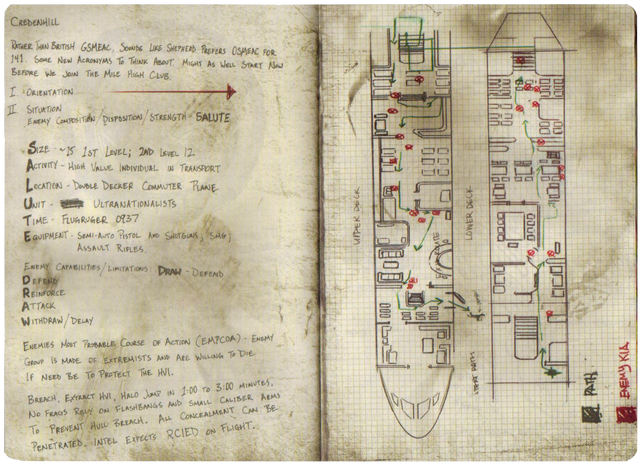 CREDENHILL
RATHER THEN BRITISH GSMEAC, SOUNDS LIKE SHEPHERD PREFERS OSMEAC FOR
141. SOME NEW ACRONYMS TO THINK ABOUT MIGHT AS WELL START NOW
BEFORE WE JOIN THE MILE HIGH CLUB.
I ORIENTATION
II SITUATION
ENEMY COMPOSITION/DISPOSITION/STRENGTH - SALUTE
SIZE - ~15 1ST LEVEL; 2ND LEVEL 12
ACTIVITY - HIGH VALUE INDIVIDUAL IN TRANSPORT
LOCATION - DOUBLE DECKER COMMUTER PLANE
UNIT - ULTRANATIONALISTS
TIME - FLUGRUGER 0937
EQUIPMENT - SEMI-AUTO PISTOL AND SHOTGUNS, SMG,
ASSAULT RIFLES.
ENEMY CAPABILITIES/LIMITATIONS: DRAW - DEFEND
DEFEND
REINFORCE
ATTACK
WITHDRAW/DELAY
ENEMIES MOST PROBABLE COURSE OF ACTION (EMPCOA) - ENEMY
GROUP IS MADE OF EXTREMISTS AND ARE WILLING TO DIE
IF NEED BE TO PROTECT THE HVI.
BREACH, EXTRACT HVI, HALO JUMP IN 1:00 TO 3:00 MINUTES.
NO FRAGS RELY ON FLASHBANGS AND SMALL CALIBER ARMS
TO PREVENT HULL BREACH. ALL CONCEALMENT CAN BE
PENETRATED. INTEL EXPECTS RCIED ON FLIGHT.
UPPER DECK
LOWER DECK
PATH
ENEMY KIA